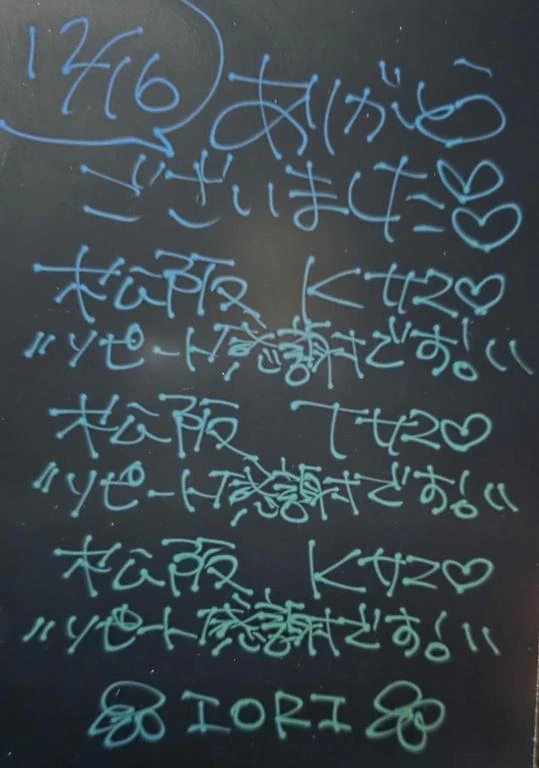 12/16 ありがとう
ございました♡♡
松阪 Kサマ♡
〃リピート感謝です!〃
松阪 Tサマ♡
〃リピート感謝です!〃
松阪 Kサマ♡
〃リピート感謝です!〃
IORI